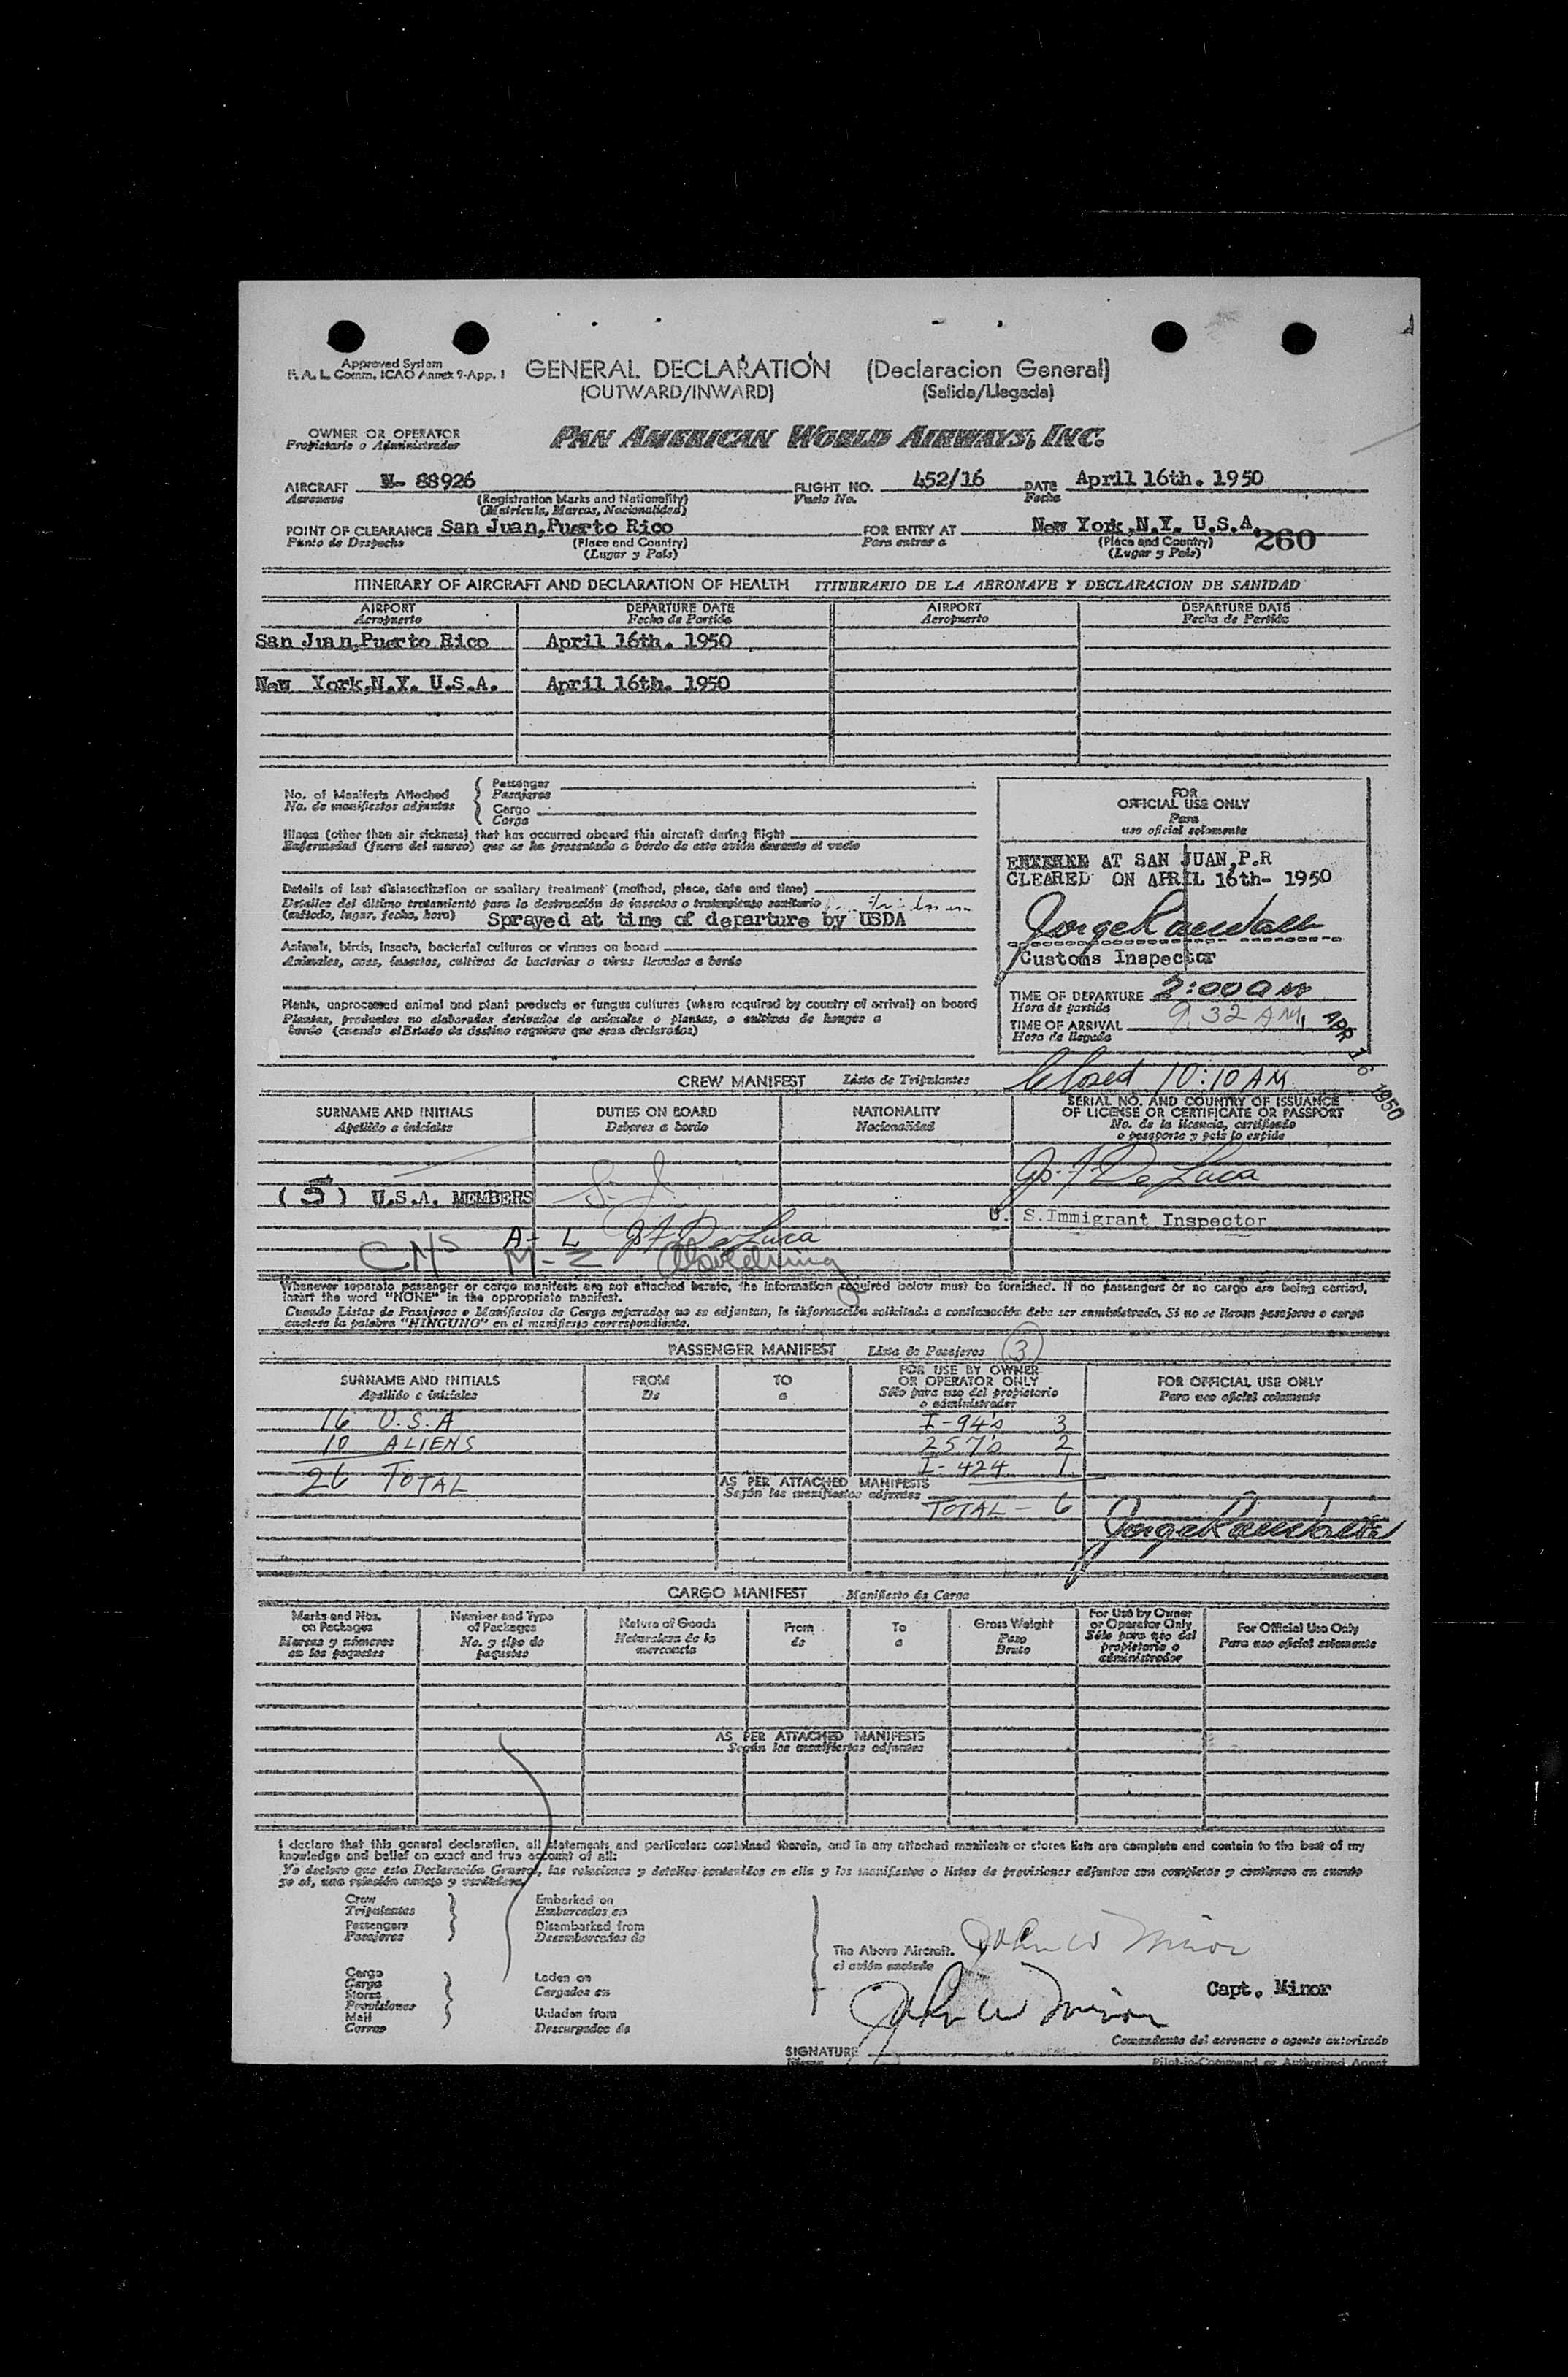 Approved System
F. A. L. Comm. ICAO Annex 9-App. 1
GENERAL DECLARATION (Declaracion General)
(OUTWARD/INWARD) (Salida/Llegada)
OWNER OR OPERATOR
Propietario o Administrador
PAN AMERICAN WORLD AIRWAYS, INC.
AIRCRAFT N- 88926 FLIGHT NO. 452/16 DATE April 16th. 1950
Aeronave (Registration Marks and Nationality) Vuelo No. Fecha
(Matricula, Marcas, Nacionalidad)
POINT OF CLEARANCE San Juan,Puerto Rico FOR ENTRY AT New York,N.Y. U.S.A.
Punto de Despacho (Place and Country) Para entrar a (Place and Country) 260
(Lugar y Pais) (Lugar y Pais)
ITINERARY OF AIRCRAFT AND DECLARATION OF HEALTH ITINERARIO DE LA AERONAVE Y DECLARACION DE SANIDAD
AIRPORT DEPARTURE DATE AIRPORT DEPARTURE DATE
Aeropuerto Fecha de Partida Aeropuerto Fecha de Partida
San Juan,Puerto Rico April 16th. 1950
New York,N.Y. U.S.A. April 16th. 1950
No. of Manifests Attached
No. de manifiestos adjuntos
Passenger
Pasajeros
Cargo
Carga
Illness (other than air sickness) that has occurred aboard this aircraft during flight
Enfermedad (fuera del mareo) que se ha presentado a bordo de este avión durante el vuelo
Details of last disinsectization or sanitary treatment (method, place, date and time)
Detalles del último tratamiento para la destrucción de insectos o tratamiento sanitario
(método, lugar, fecha, hora) Sprayed at time of departure by USDA
Animals, birds, insects, bacterial cultures or viruses on board
Animales, aves, insectos, cultivos de bacterias o virus llevados a bordo
Plants, unprocessed animal and plant products or fungus cultures (where required by country of arrival) on board
Plantas, productos no elaborados derivados de animales o plantas, o cultivos de hongos a
bordo (cuando el Estado de destino requiere que sean declarados)
FOR
OFFICIAL USE ONLY
Para
uso oficial solamente
ENTERED AT SAN JUAN,P.R
CLEARED ON APRIL 16th- 1950
Jorge Randall
Customs Inspector
TIME OF DEPARTURE 2:00 am
Hora de partida
TIME OF ARRIVAL 9.32 AM.
Hora de llegada
APR 16 1950
Closed 10:10 AM
CREW MANIFEST Lista de Tripulantes
SURNAME AND INITIALS DUTIES ON BOARD NATIONALITY SERIAL NO. AND COUNTRY OF ISSUANCE
OF LICENSE OR CERTIFICATE OR PASSPORT
Apellido e iniciales Deberes a bordo Nacionalidad No. de la licencia, certificado
o pasaporte y pais lo expide
(5) U.S.A. MEMBERS
U. S.Immigrant Inspector
A - L
CNS M - Z
Whenever separate passenger or cargo manifests are not attached hereto, the information required below must be furnished. If no passengers or no cargo are being carried,
insert the word "NONE" in the appropriate manifest.
Cuando Listas de Pasajeros o Manifiestos de Carga separados no se adjuntan, la información solicitada a continuación debe ser suministrada. Si no se llevan pasajeros o carga
anótese la palabra "NINGUNO" en el manifiesto correspondiente.
PASSENGER MANIFEST Lista de Pasajeros 3
SURNAME AND INITIALS FROM TO FOR USE BY OWNER
OR OPERATOR ONLY FOR OFFICIAL USE ONLY
Apellido e iniciales De a Sólo para uso del propietario
o administrador Para uso oficial solamente
16 U.S.A I-94's 3
10 ALIENS 257's 2
I-424 1
26 TOTAL AS PER ATTACHED MANIFESTS
Según los manifiestos adjuntos
TOTAL - 6
Jorge Randall
CARGO MANIFEST Manifiesto de Carga
Marks and Nos.
on Packages
Marcas y números
en los paquetes
Number and Type
of Packages
No. y tipo de
paquetes
Nature of Goods
Naturaleza de la
mercancia
From
de
To
a
Gross Weight
Peso
Bruto
For Use by Owner
or Operator Only
Sólo para uso del
propietario o
administrador
For Official Use Only
Para uso oficial solamente
AS PER ATTACHED MANIFESTS
Según los manifiestos adjuntos
I declare that this general declaration, all statements and particulars contained therein, and in any attached manifests or stores lists are complete and contain to the best of my
knowledge and belief an exact and true account of all:
Yo declaro que esta Declaración General, las relaciones y detalles contenidos en ella y los manifiestos o listas de provisiones adjuntos son completos y contienen en cuanto
yo sé, una relación exacta y verdadera.
Crew
Tripulantes
Passengers
Pasajeros
Embarked on
Embarcados en
Disembarked from
Desembarcados de
Cargo
Carga
Stores
Provisiones
Mail
Correo
Laden on
Cargados en
Unladen from
Descargados de
The Above Aircraft.
el avión anotado
John W Minor
John W Minor
Capt. Minor
Comandante del aeronave o agente autorizado
SIGNATURE
Pilot-in-Command or Authorized Agent